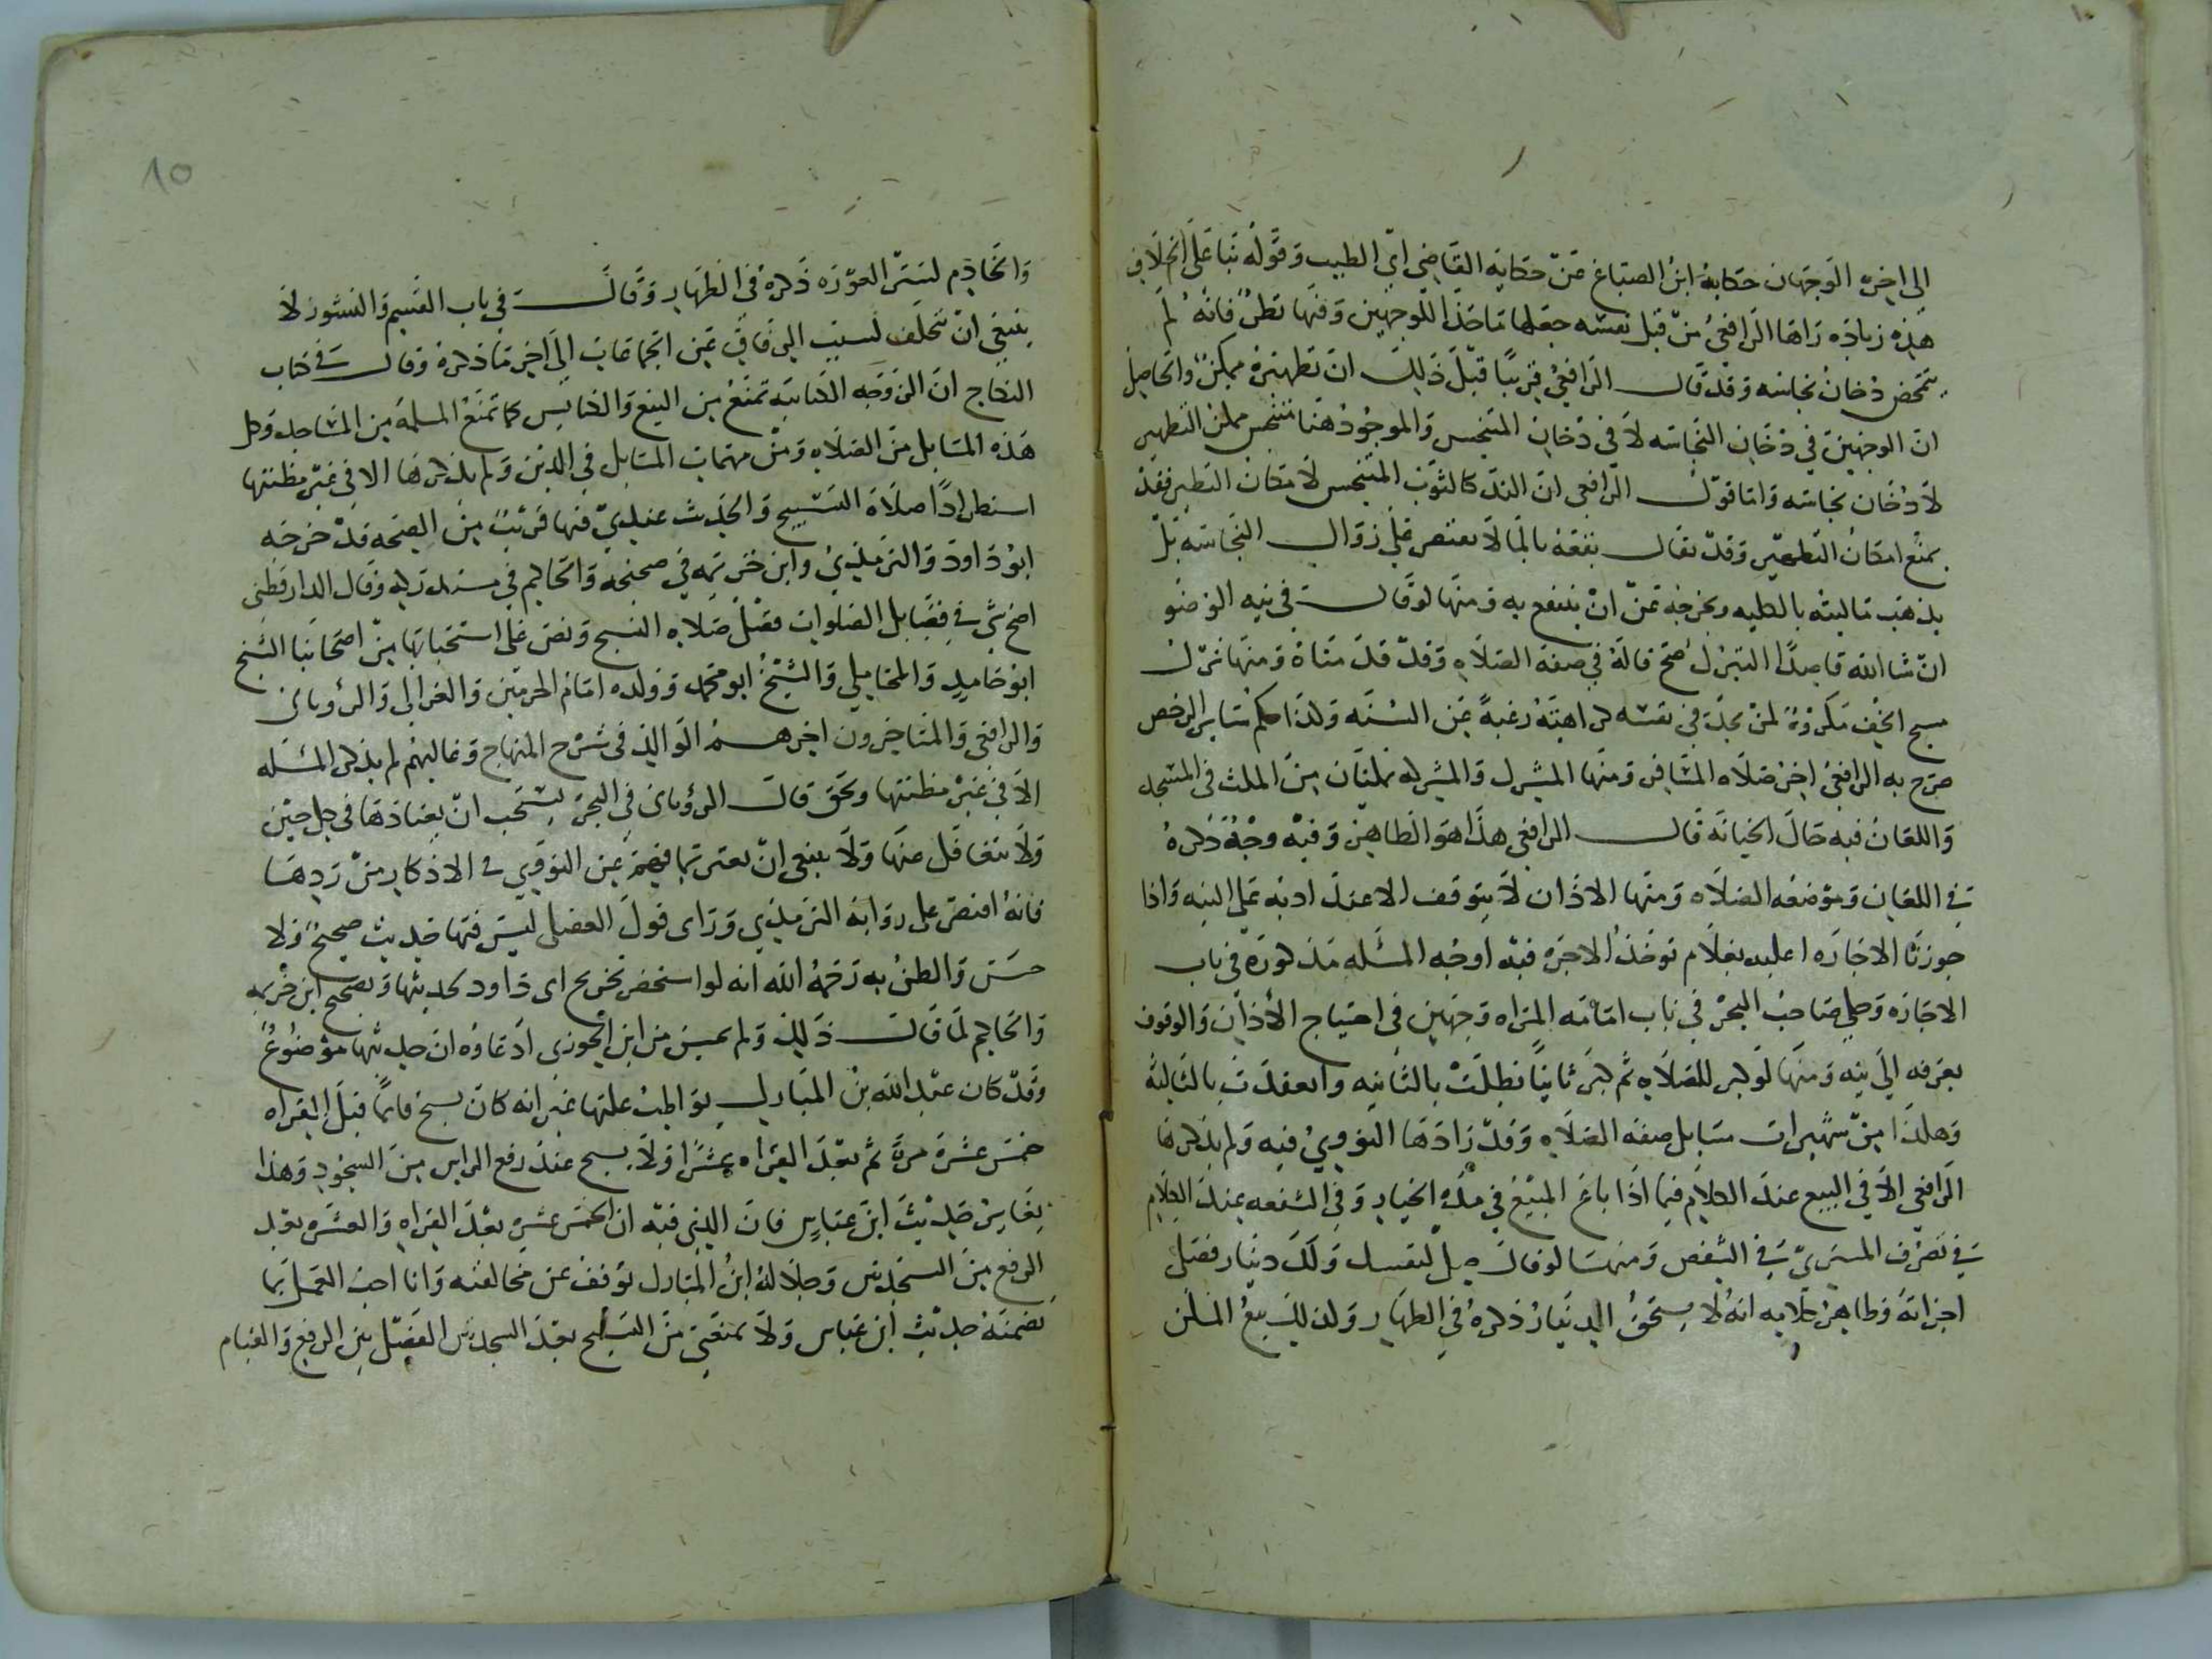 الى اخره الوجهان حكاية ابن الصباغ عن حكاية القاضي ابي الطيب وقوله بنا على الخلاف
هذه زيادة زادها الرافعي من قبل نفسه جعلها ماخذا للوجهين وفيها نظر فانه لم
يتمحض دخان نجاسه وقد قال الرافعي قريبا قبل ذلك ان تطهيره ممكن والحاصل
ان الوجهين في دخان النجاسه لا في دخان المتنجس والموجود هنا متنجس ممكن التطهير
لا دخان نجاسه واما قول الرافعي ان الند كالثوب المتنجس لامكان التطهير فقد
يمنع امكان التطهير وقد يقال نقعه بالما لا يقتصر على زوال النجاسه بل
يذهب ماليته بالكليه ويخرجه عن ان ينتفع به ومنها لو قال في نيه الوضو
ان شا الله قاصدا التبرك صح قاله في صفه الصلاه وقد قدمناه ومنها ترك
مسح الخف مكروه لمن يجد في نفسه كراهته رغبة عن السنه وكذا حكم ساير الرخص
صرح به الرافعي اخر صلاه المسافر ومنها المشرك والمشركه يمكنان من المكث في المسجد
واللعان فيه حال الجنابه قال الرافعي هذا هو الظاهر وفيه وجه ذكره
في اللعان وموضعه الصلاه ومنها الاذان لا يتوقف الاعتداد به على النيه واذا
جوزنا الاجاره عليه فعلام توخذ الاجره فيه اوجه المسله مذكوره في باب
الاجاره وحكى صاحب البحر في باب امامه المراه وجهين في احتياج الأذان والوقوف
بعرفه الى نيه ومنها لو كبر للصلاه ثم كبر ثانيا بطلت بالثانيه وانعقدت بالثالثه
وهكذا من شهيرات مسايل صفه الصلاه وقد زادها النووي فيه ولم يذكرها
الرافعي الا في البيع عند الكلام فيما اذا باع المبيع في مده الخيار وفي الشفعه عند الكلام
في تصرف المشتري في الشقص ومنها لو قال صل لنفسك ولك دينار فصلى
اجزاته وظاهر كلامه انه لا يستحق الدينار ذكره في الظهار وكذلك بيع المسلمن
والخادم لستر العوره ذكره في الظهار وقال في باب القسم والنشوز لا
ينبغي ان يتخلف لسبب الزفاف عن الجماعات الى اخر ما ذكره وقال في كتاب
النكاح ان الزوجه الكتابيه تمنع من البيع والكنايس كما تمنع المسلمه من المساجد وكل
هذه المسايل من الصلاه ومن مهمات المسايل في الدين ولم يذكرها الا في غير مظنتها
استطرادا صلاه التسبيح والحديث عندي فيها قريب من الصحه فقد خرجه
ابو داود والترمذي وابن خزيمه في صحيحه والحاكم في مستدركه وقال الدارقطني
اصح شي في فضايل الصلوات فضل صلاه التسبيح ونص على استحبابها من اصحابنا الشيخ
ابو حامد والمحاملي والشيخ ابو محمد وولده امام الحرمين والغزالي والروياني
والرافعي والمتاخرون اخرهم الوالد في شرح المنهاج وغالبهم لم يذكر المسله
الا في غير مظنتها وبحق قال الروياني في البحر يستحب ان يعتادها في كل حين
ولا يتغافل عنها ولا ينبغي ان يغتر بما فهم عن النووي في الاذكار من ردها
فانه اقتصر على روايه الترمذي وراى قول العقيلي ليس فيها حديث صحيح ولا
حسن والظن به رحمه الله انه لو استحضر تخريج ابي داود لحديثها وتصحيح ابن خزيمه
والحاكم لما قال ذلك ولم يحسن من ابن الجوزي ادعاوه ان حديثها موضوع
وقد كان عبد الله بن المبارك يواظب عليها غير انه كان يسبح قايما قبل القراه
خمس عشره مرة ثم بعد القراه عشرا ولا يسبح عند رفع الراس من السجود وهذا
يغاير حديث ابن عباس فان الذي فيه ان الخمس عشره بعد القراه والعشره بعد
الرفع من السجدتين وجلالة ابن المبارك توقف عن مخالفته وانا احب العمل بما
تضمنه حديث ابن عباس ولا يمنعني من التسبيح بعد السجدتين الفصل بين الرفع والقيام
10